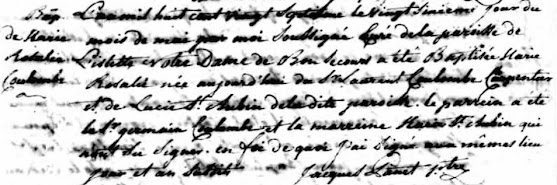 Bap L'an mil huit cent vingt septième le vingt sixième jour du
de Marie mois de mai par moi Soussigné Curé de la paroisse de
Rosalie Lislette Notre Dame de Bon Secours a été Baptisée Marie
Coulombe Rosalie née aujourd'hui du St laurent Coulombe Charpentier
et de Lucie St Aubin de la dite paroisse. le parrein a été
le Sr germain Coulombe et la marreine Marie St Aubin qui
n'ont su Signer. en foi de quoi j'ai Signé aux mêmes lieu
jour et an susdits Jacques Panet ptre